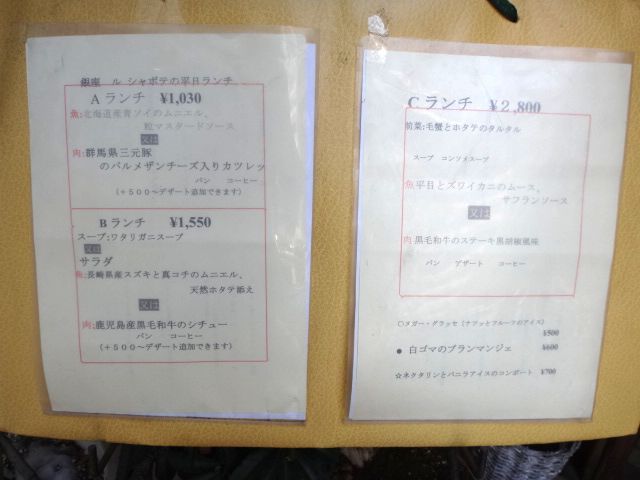 銀座 ル シャポテの平日ランチ
Aランチ ¥1,030
魚:北海道産青ソイのムニエル、
粒マスタードソース
又は
肉:群馬県三元豚
のパルメザンチーズ入りカツレッ
パン コーヒー
(+500～デザート追加できます)
Bランチ ¥1,550
スープ:ワタリガニスープ
又は
サラダ
魚:長崎県産スズキと真コチのムニエル、
天然ホタテ添え
又は
肉:鹿児島産黒毛和牛のシチュー
パン コーヒー
(+500～デザート追加できます)
Cランチ ¥2,800
前菜:毛蟹とホタテのタルタル
スープ コンソメスープ
魚:平目とズワイカニのムース、
サフランソース
又は
肉:黒毛和牛のステーキ黒胡椒風味
パン デザート コーヒー
○ヌガー・グラッセ(ナッツとフルーツのアイス)
¥500
● 白ゴマのブランマンジェ ¥600
☆ネクタリンとバニラアイスのコンポート ¥700